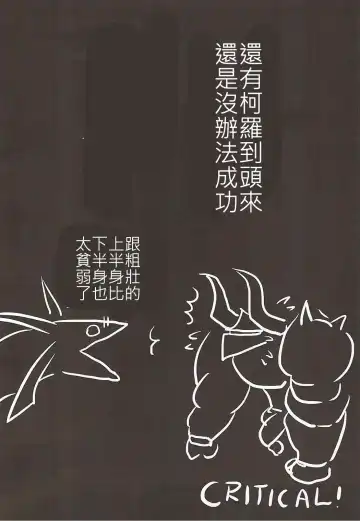 還有柯羅到頭來
還是沒辦法成功
跟粗壯的
上半身比
下半身也
太貧弱了
CRITICAL!